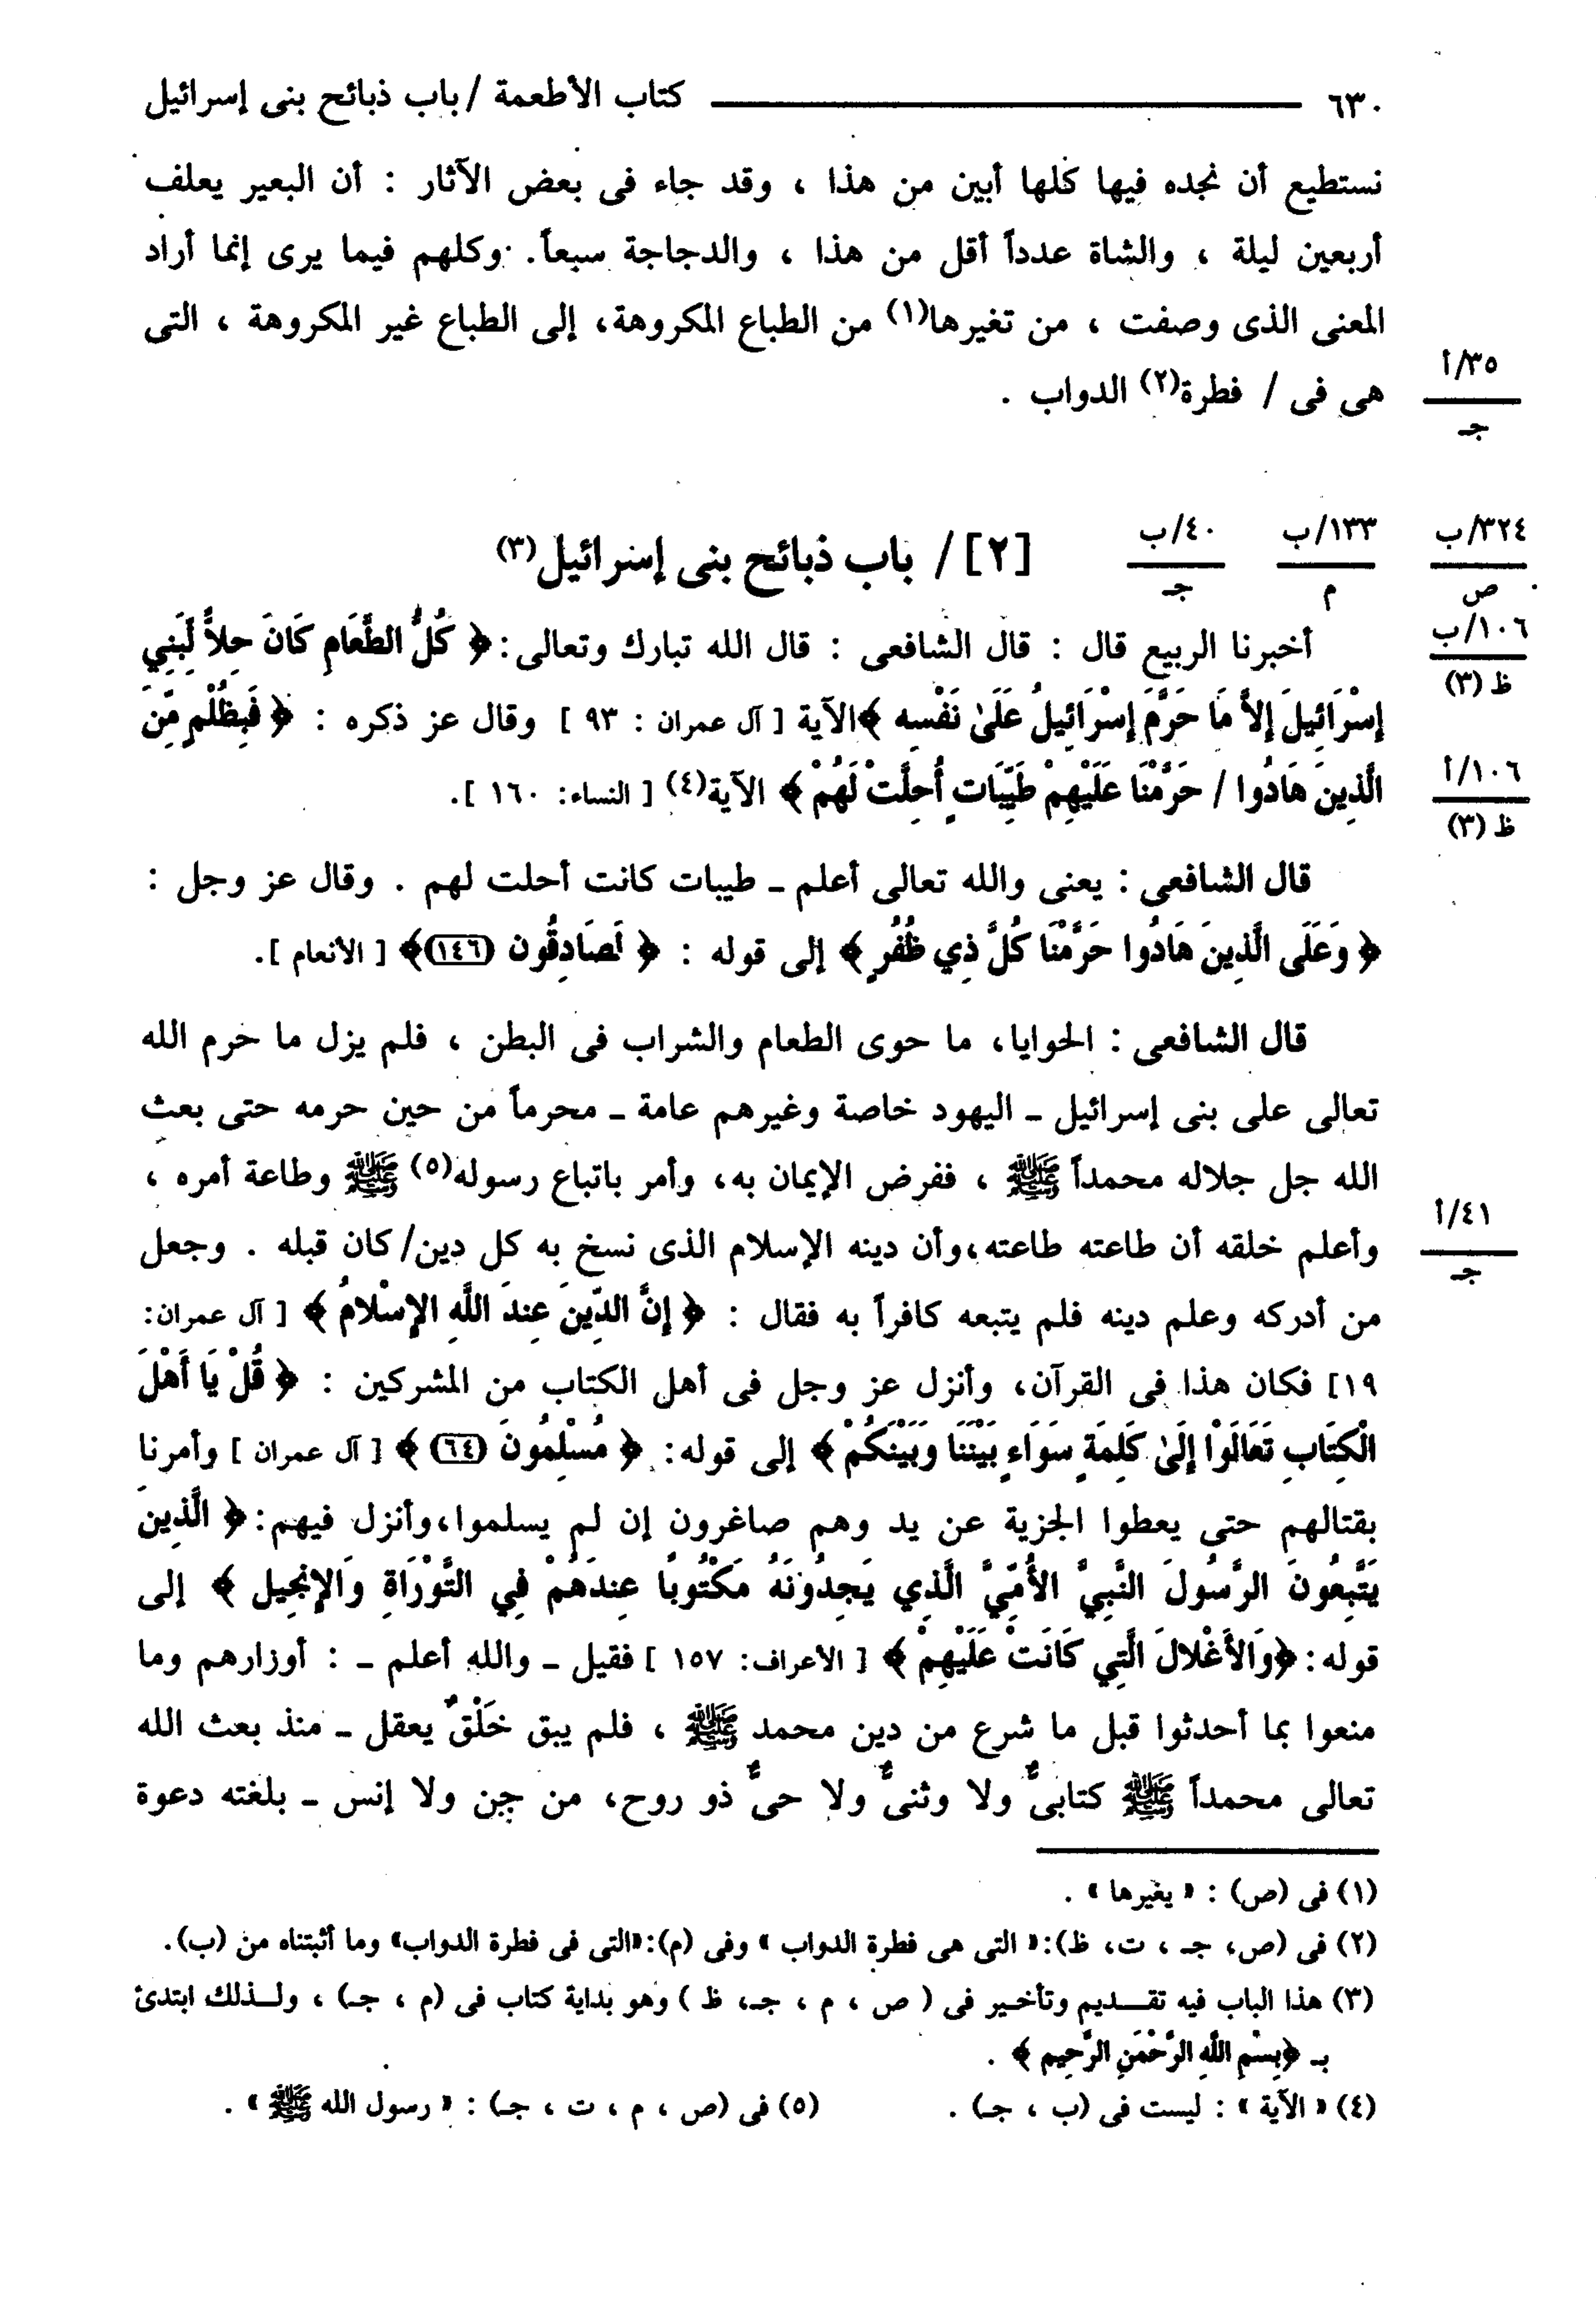 ٦٣٠ ــــــــــ كتاب الأطعمة / باب ذبائح بنى إسرائيل
نستطيع أن نجده فيها كلها أبين من هذا ، وقد جاء فى بعض الآثار : أن البعير يعلف
أربعين ليلة ، والشاة عدداً أقل من هذا ، والدجاجة سبعاً. وكلهم فيما يرى إنما أراد
المعنى الذى وصفت ، من تغيرها(١) من الطباع المكروهة، إلى الطباع غير المكروهة ، التى
٣٥/أ
جـ
هى فى / فطرة(٢) الدواب .
٣٢٤/ب
ص
١٣٣/ب
م
٤٠/ب
جـ
[٢] / باب ذبائح بنى إسرائيل(٣)
١٠٦/ب
ظ (٣)
أخبرنا الربيع قال : قال الشافعى : قال الله تبارك وتعالى: ﴿ كُلُّ الطَّعَامِ كَانَ حِلاًّ لِّبَنِي
إِسْرَائِيلَ إِلاَّ مَا حَرَّمَ إِسْرَائِيلُ عَلَىٰ نَفْسِهِ ﴾الآية [ آل عمران : ٩٣ ] وقال عز ذكره : ﴿ فَبِظُلْمٍ مِّنَ
١٠٦/أ
ظ (٣)
الَّذِينَ هَادُوا / حَرَّمْنَا عَلَيْهِمْ طَيِّبَاتٍ أُحِلَّتْ لَهُمْ ﴾ الآية(٤) [ النساء: ١٦٠ ].
قال الشافعى : يعنى والله تعالى أعلم ـ طيبات كانت أحلت لهم . وقال عز وجل :
﴿ وَعَلَى الَّذِينَ هَادُوا حَرَّمْنَا كُلَّ ذِي ظُفُرٍ ﴾ إلى قوله : ﴿ لَصَادِقُون (١٤٦)﴾ [ الأنعام ].
قال الشافعى : الحوايا، ما حوى الطعام والشراب فى البطن ، فلم يزل ما حرم الله
تعالى على بنى إسرائيل ـ اليهود خاصة وغيرهم عامة ـ محرماً من حين حرمه حتى بعث
الله جل جلاله محمداً ﷺ ، ففرض الإيمان به، وأمر باتباع رسوله(٥) ﷺ وطاعة أمره ،
٤١/أ
جـ
وأعلم خلقه أن طاعته طاعته،وأن دينه الإسلام الذى نسخ به كل دين/كان قبله . وجعل
من أدركه وعلم دينه فلم يتبعه كافراً به فقال : ﴿ إِنَّ الدِّينَ عِندَ اللَّهِ الإِسْلامُ ﴾ [ آل عمران:
١٩] فكان هذا فى القرآن، وأنزل عز وجل فى أهل الكتاب من المشركين : ﴿ قُلْ يَا أَهْلَ
الْكِتَابِ تَعَالَوْا إِلَىٰ كَلِمَةٍ سَوَاءٍ بَيْنَنَا وَبَيْنَكُمْ ﴾ إلى قوله: ﴿ مُسْلِمُونَ (٦٤) ﴾ [ آل عمران ] وأمرنا
بقتالهم حتى يعطوا الجزية عن يد وهم صاغرون إن لم يسلموا،وأنزل فيهم: ﴿ الَّذِينَ
يَتَّبِعُونَ الرَّسُولَ النَّبِيَّ الأُمِّيَّ الَّذِي يَجِدُونَهُ مَكْتُوبًا عِندَهُمْ فِي التَّوْرَاةِ وَالإِنجِيلِ ﴾ إلى
قوله: ﴿وَالأَغْلالَ الَّتِي كَانَتْ عَلَيْهِمْ ﴾ [ الأعراف: ١٥٧ ] فقيل ـ والله أعلم ـ : أوزارهم وما
منعوا بما أحدثوا قبل ما شرع من دين محمد ﷺ ، فلم يبق خَلْقٌ يعقل ـ منذ بعث الله
تعالى محمداً ﷺ كتابىٌّ ولا وثنىٌّ ولا حىٌّ ذو روح، من جن ولا إنس ـ بلغته دعوة
(١) فى (ص) : « يغيرها » .
(٢) فى (ص، جـ ، ت، ظ):« التى هى فطرة الدواب » وفى (م):«التى فى فطرة الدواب» وما أثبتناه من (ب).
(٣) هذا الباب فيه تقـديم وتأخـير فى ( ص ، م ، جـ، ظ ) وهو بداية كتاب فى (م ، جـ) ، ولـذلك ابتدئ
بـ ﴿بِسْمِ اللَّهِ الرَّحْمَنِ الرَّحِيمِ ﴾ .
(٤) « الآية » : ليست فى (ب ، جـ) .
(٥) فى (ص ، م ، ت ، جـ) : « رسول الله ﷺ » .